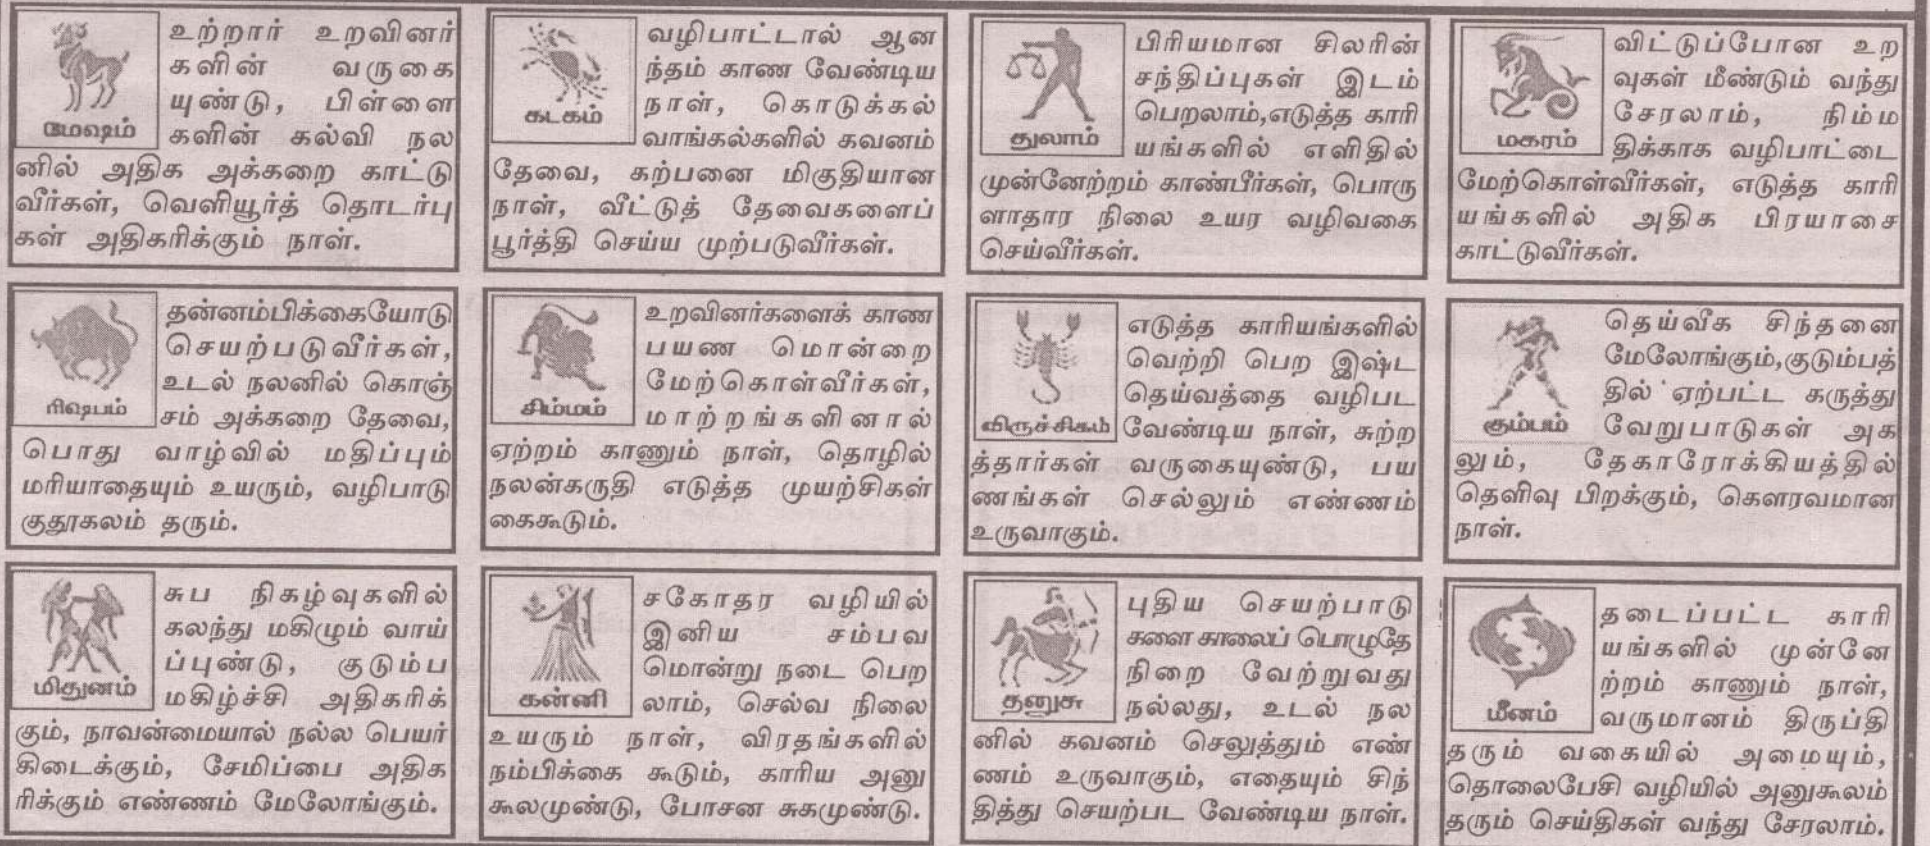 உற்றார் உறவினர்
களின் வருகை
யுண்டு, பிள்ளை
களின் கல்வி நல
மேஷம்
னில் அதிக அக்கறை காட்டு
வீர்கள், வெளியூர்த் தொடர்பு
கள் அதிகரிக்கும் நாள்.
தன்னம்பிக்கையோடு
செயற்படுவீர்கள்,
உடல் நலனில் கொஞ்
சம் அக்கறை தேவை,
ரிஷபம்
பொது வாழ்வில் மதிப்பும்
மரியாதையும் உயரும், வழிபாடு
குதூகலம் தரும்.
சுப நிகழ்வுகளில்
கலந்து மகிழும் வாய்
ப்புண்டு, குடும்ப
மகிழ்ச்சி அதிகரிக்
மிதுனம்
கும், நாவன்மையால் நல்ல பெயர்
கிடைக்கும், சேமிப்பை அதிக
ரிக்கும் எண்ணம் மேலோங்கும்.
வழிபாட்டால் ஆன
ந்தம் காண வேண்டிய
நாள், கொடுக்கல்
வாங்கல்களில் கவனம்
கடகம்
தேவை, கற்பனை மிகுதியான
நாள், வீட்டுத் தேவைகளைப்
பூர்த்தி செய்ய முற்படுவீர்கள்.
உறவினர்களைக் காண
பயண மொன்றை
மேற்கொள்வீர்கள்,
மாற்றங்களினால்
சிம்மம்
ஏற்றம் காணும் நாள், தொழில்
நலன்கருதி எடுத்த முயற்சிகள்
கைகூடும்.
சகோதர வழியில்
இனிய சம்பவ
மொன்று நடை பெற
லாம், செல்வ நிலை
கன்னி
உயரும் நாள், விரதங்களில்
நம்பிக்கை கூடும், காரிய அனு
கூலமுண்டு, போசன சுகமுண்டு.
பிரியமான சிலரின்
சந்திப்புகள் இடம்
பெறலாம்,எடுத்த காரி
யங்களில் எளிதில்
துலாம்
முன்னேற்றம் காண்பீர்கள், பொரு
ளாதார நிலை உயர வழிவகை
செய்வீர்கள்.
எடுத்த காரியங்களில்
வெற்றி பெற இஷ்ட
தெய்வத்தை வழிபட
வேண்டிய நாள், சுற்ற
விருச்சிகம்
த்தார்கள் வருகையுண்டு, பய
ணங்கள் செல்லும் எண்ணம்
உருவாகும்.
புதிய செயற்பாடு
களை காலைப் பொழுதே
நிறை வேற்றுவது
நல்லது, உடல் நல
தனுசு
னில் கவனம் செலுத்தும் எண்
ணம் உருவாகும், எதையும் சிந்
தித்து செயற்பட வேண்டிய நாள்.
விட்டுப்போன உற
வுகள் மீண்டும் வந்து
சேரலாம், நிம்ம
திக்காக வழிபாட்டை
மகரம்
மேற்கொள்வீர்கள், எடுத்த காரி
யங்களில் அதிக பிரயாசை
காட்டுவீர்கள்.
தெய்வீக சிந்தனை
மேலோங்கும்,குடும்பத்
தில் ஏற்பட்ட கருத்து
வேறுபாடுகள் அக
கும்பம்
லும், தேகாரோக்கியத்தில்
தெளிவு பிறக்கும், கௌரவமான
நாள்.
தடைப்பட்ட காரி
யங்களில் முன்னே
ற்றம் காணும் நாள்,
வருமானம் திருப்தி
மீனம்
தரும் வகையில் அமையும்,
தொலைபேசி வழியில் அனுகூலம்
தரும் செய்திகள் வந்து சேரலாம்.